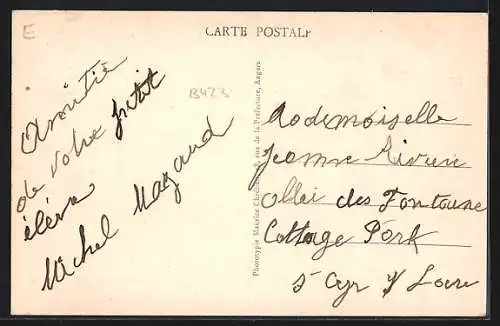 E
CARTE POSTALE
B423
Amitié
de votre petit
élève
Michel Mazand
Phototypie Maurice Chrétien, rue de la Préfecture, Angers
Mademoiselle
Jeanne Rivière
Allei des Fontaine
Cottage Pork
St Cyr s/ Loire